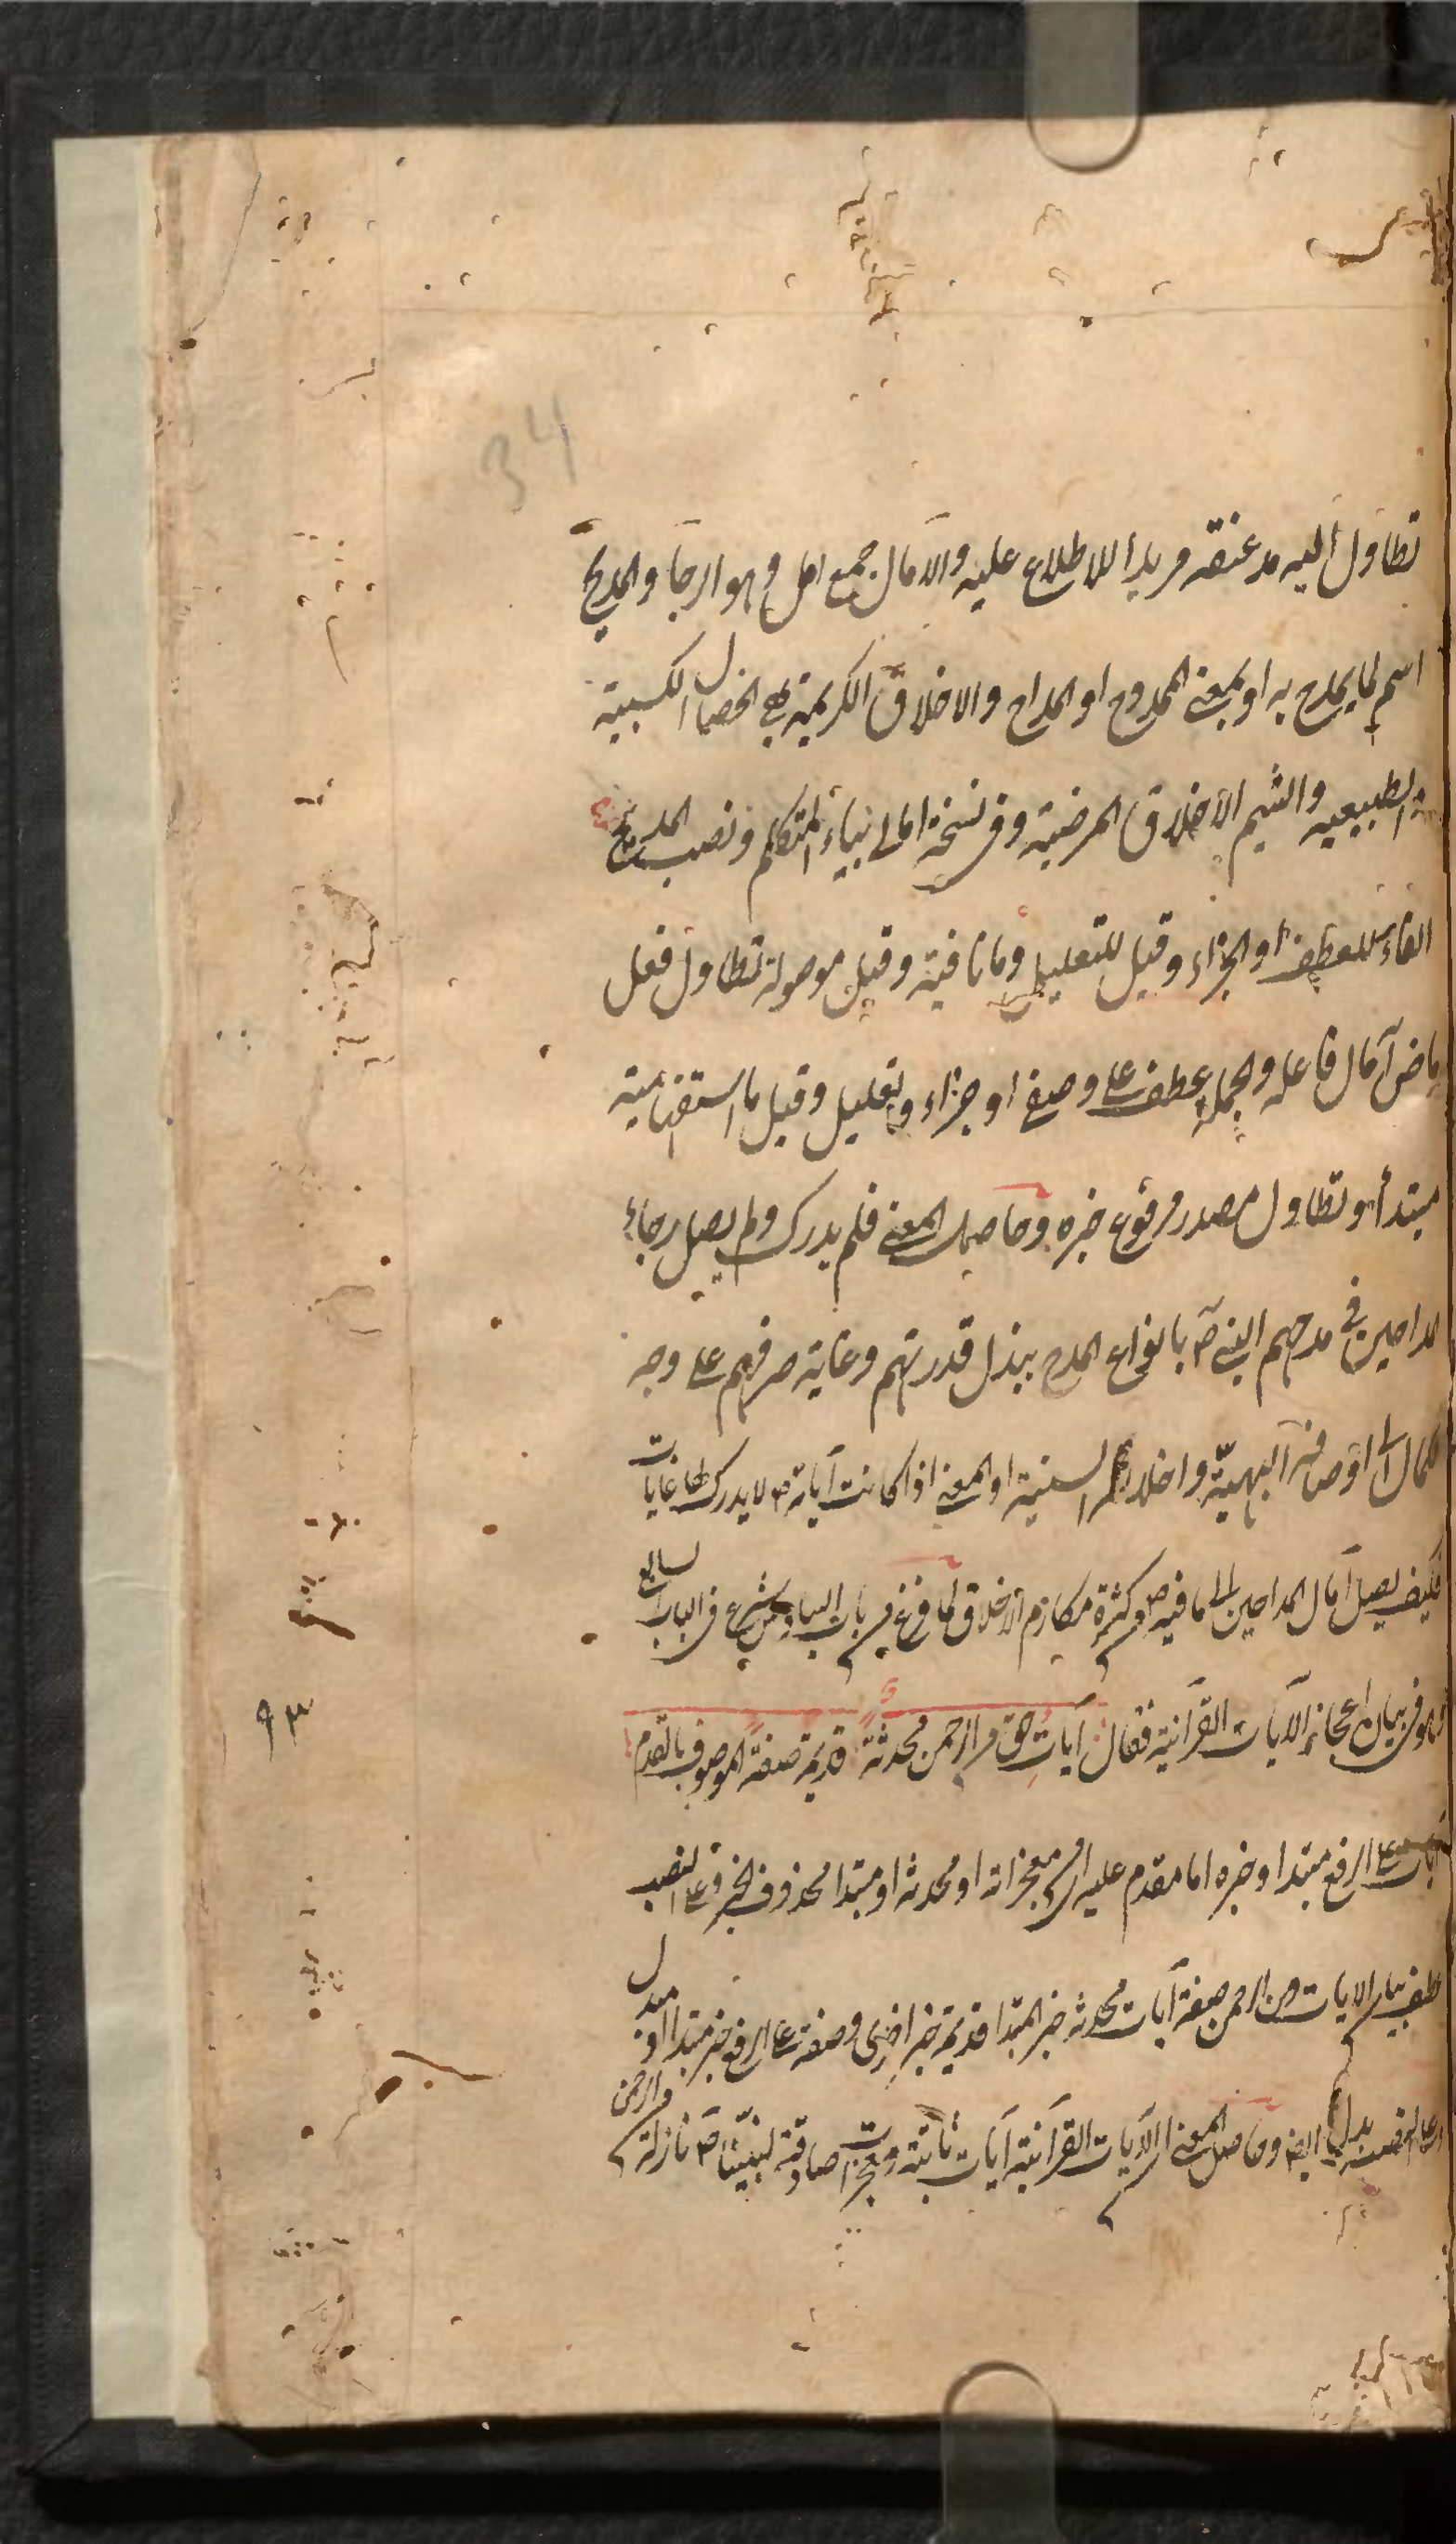 34
تطاول اليه مد عنقه مريدا للاطلاع عليه والآمال جمع امل وهو الرجاء والمديح
اسم لما يمدح به او بمعنى الممدوح او المداح والاخلاق الكريمة هي الخصال الكسبية
الطبيعيه والشيم الاخلاق المرضية وفي نسخة امالي بياء المتكلم ونصب المديح
الفاء للعطف او الجزاء وقيل للتعليل وما نافية وقيل موصولة تطاول فعل
ماض آمال فاعله والجملة عطف على وصفي او جزاء وتعليل وقيل ما استفهامية
مبتدأ وتطاول مصدر مرفوع خبره وحاصل المعنى فلم يدرك ولم يصل رجاء
المداحين في مدحهم النبي ص بانواع المدح ببذل قدرتهم وغاية صرفهم على وجه
الكمال الى اوصافه البهيّة واخلاقه السنية او المعنى اذا كانت آياته ص لا يدرك لها غايات
فكيف يصل آمال المداحين الى ما فيه ص من كثرة مكارم الاخلاق لما فرغ من باب السادس شرع في الباب السابع
وهو في بيان اعجاز الآيات القرآنية فقال آيات حق من الرحمن محدثة قديمة صفة الموصوف بالقدم
آيات على الرفع مبتدا وخبره اما مقدم عليه اى من معجزاته او محدثه او مبتدا محذوف الخبر وعلى النصب
عطف بيان الايات ومن الرحمن صفة آيات محدثه خبر المبتدا قديمة خبر اخرى وصفة على الرفع خبر مبتدا او بدل
وعلى النصب بدل ايضا وحاصل المعنى ان الآيات القرآنية آيات ثابتة ومعجزات صادقة لنبيّنا ص نازلة من الرحمن
٩٣